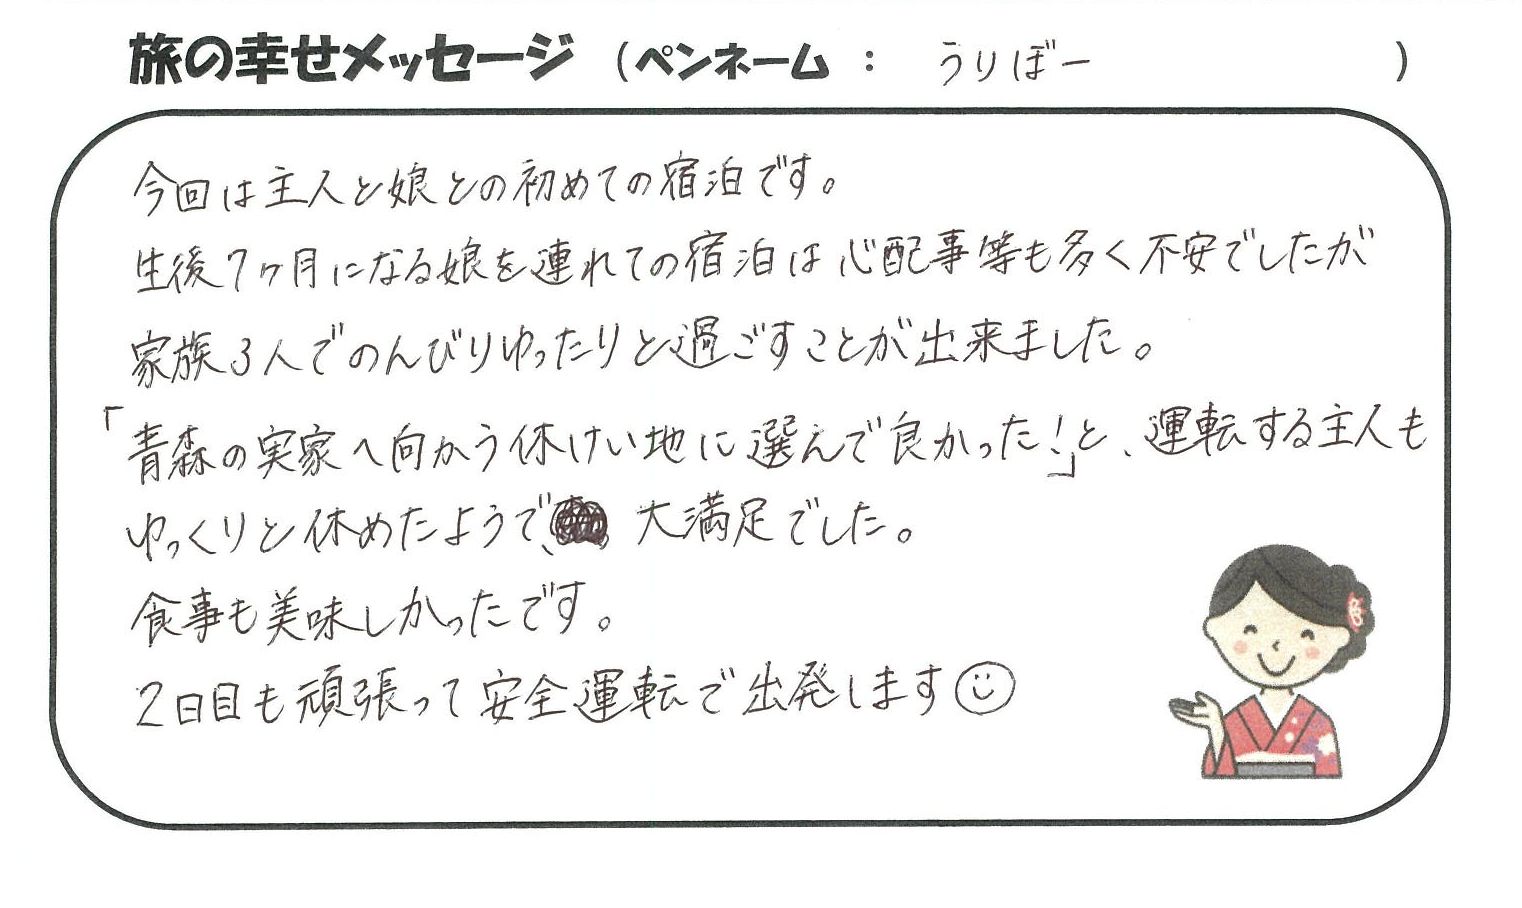 旅の幸せメッセージ (ペンネーム : うりぼー )
今回は主人と娘との初めての宿泊です。
生後7ヶ月になる娘を連れての宿泊は心配事等も多く不安でしたが
家族3人でのんびりゆったりと過ごすことが出来ました。
「青森の実家へ向かう休けい地に選んで良かった!」と、運転する主人も
ゆっくりと休めたようで、大満足でした。
食事も美味しかったです。
2日目も頑張って安全運転で出発します☺